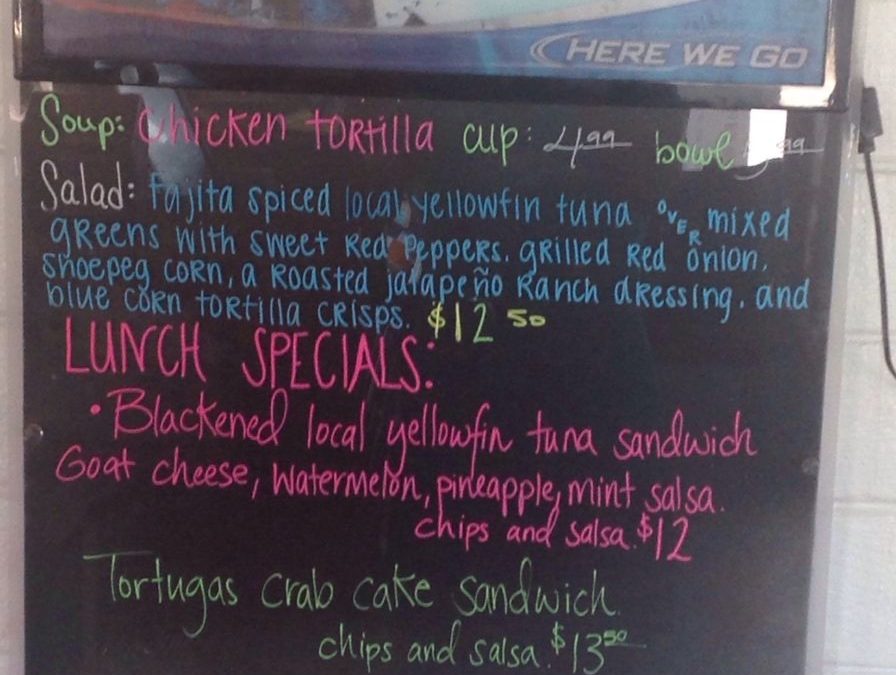 HERE WE GO
Soup: Chicken tortilla cup: 4.99 bowl
Salad: Fajita spiced local yellowfin tuna over mixed
greens with sweet red peppers. grilled red onion,
shoepeg corn, a roasted jalapeño ranch dressing, and
blue corn tortilla crisps. $12 50
LUNCH SPECIALS:
• Blackened local yellowfin tuna sandwich
Goat cheese, watermelon, pineapple, mint salsa.
chips and salsa. $12
Tortugas crab cake sandwich.
chips and salsa. $13 50